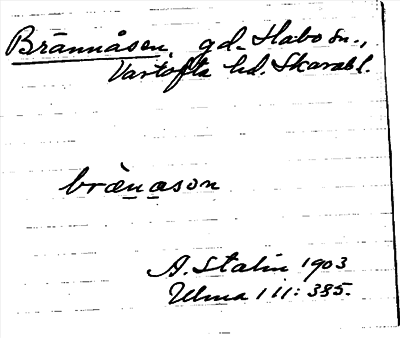 Brännåsen, gd. Habo sn.,
Vartofta hd. Skarab l.
bræ̀nason
A. Stalin 1903
Ulma 111: 385.